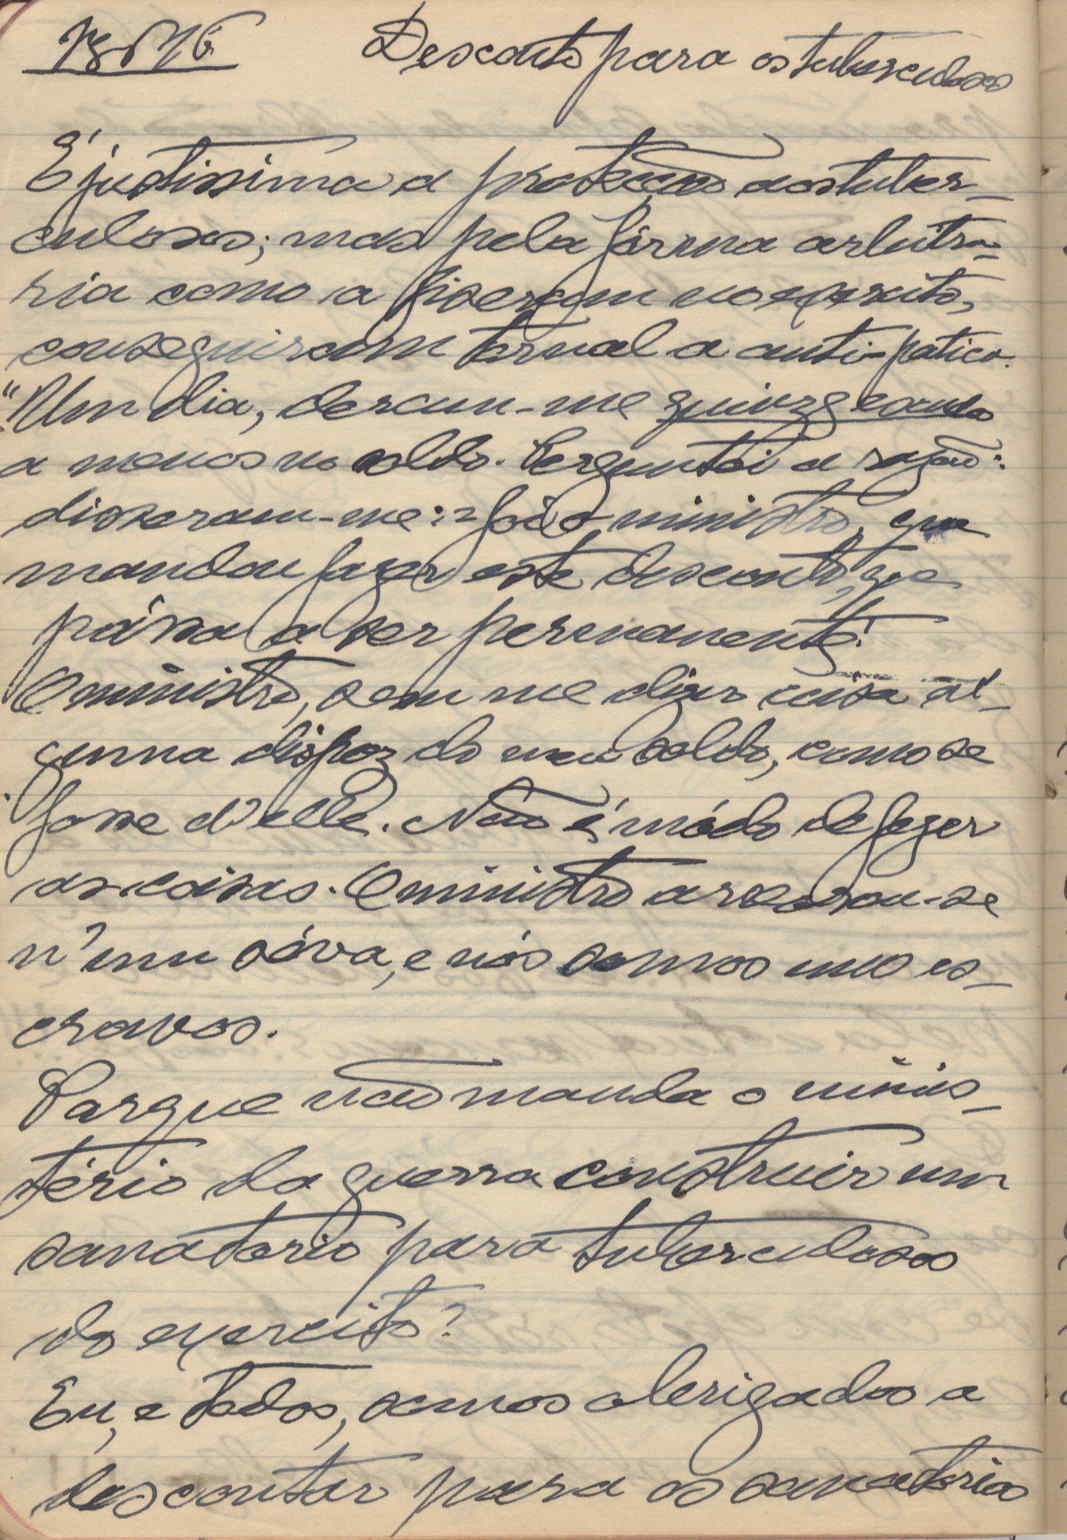 Desconto para os tuberculosos
É justissima a proteção aos tuber-
culosos; mas pela fórma arbitra-
ria como a fizeram no exercito,
conseguiram tornal a anti-patica.
"Um dia, deram-me quinze escudo
a menos no soldo. Perguntei a razão:
disseram-me: = foi o ministro, que
mandou fazer este desconto, que
pássa a ser permanente!
O ministro, sem me dizer coisa al-
guma dispoz do meu soldo, como se
fosse d'elle. Não é módo de fazer
as coisas. O ministro arvorou-se
n'um sóva, e nós somos uns es-
cravos.
Porque não manda o minis-
tério da guerra construir um
sanatorio para tuberculosos
do exercito?
Eu, e todos, somos obrigados a
descontar para os sanatorios